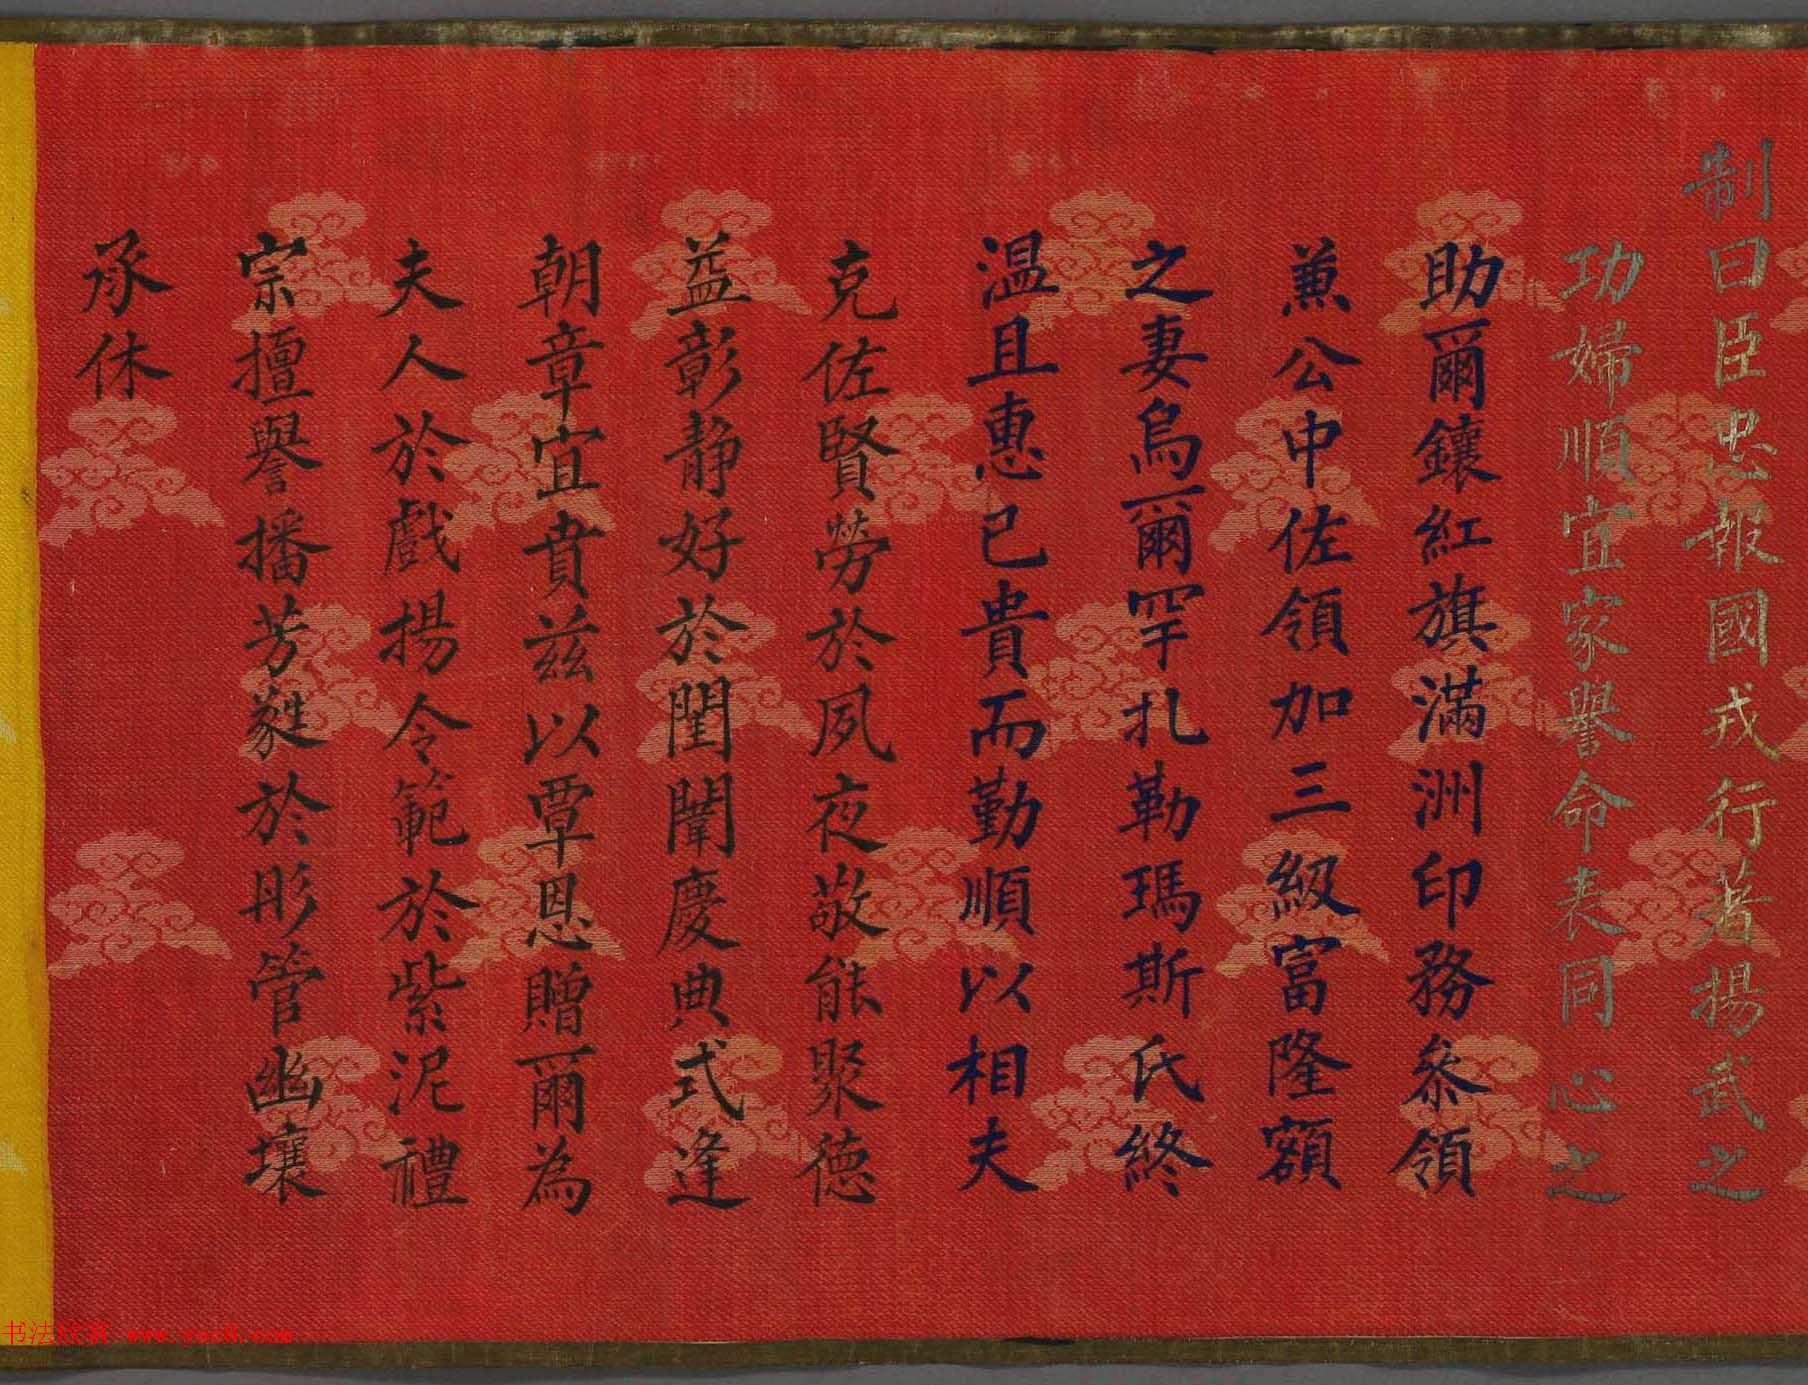 制曰臣忠報國戎行著揚武之
功婦順宜家譽命表同心之
助爾鑲紅旗滿洲印務叅領
兼公中佐領加三級富隆額
之妻烏爾罕扎勒瑪斯氏終
温且惠已貴而勤順以相夫
克佐賢勞於夙夜敬能聚德
益彰静好於閨闈慶典式逢
朝章宜賁兹以覃恩贈爾為
夫人於戲揚令範於紫泥禮
宗擅譽播芳蕤於彤管幽壤
承休
书法欣赏 www.yac8.com